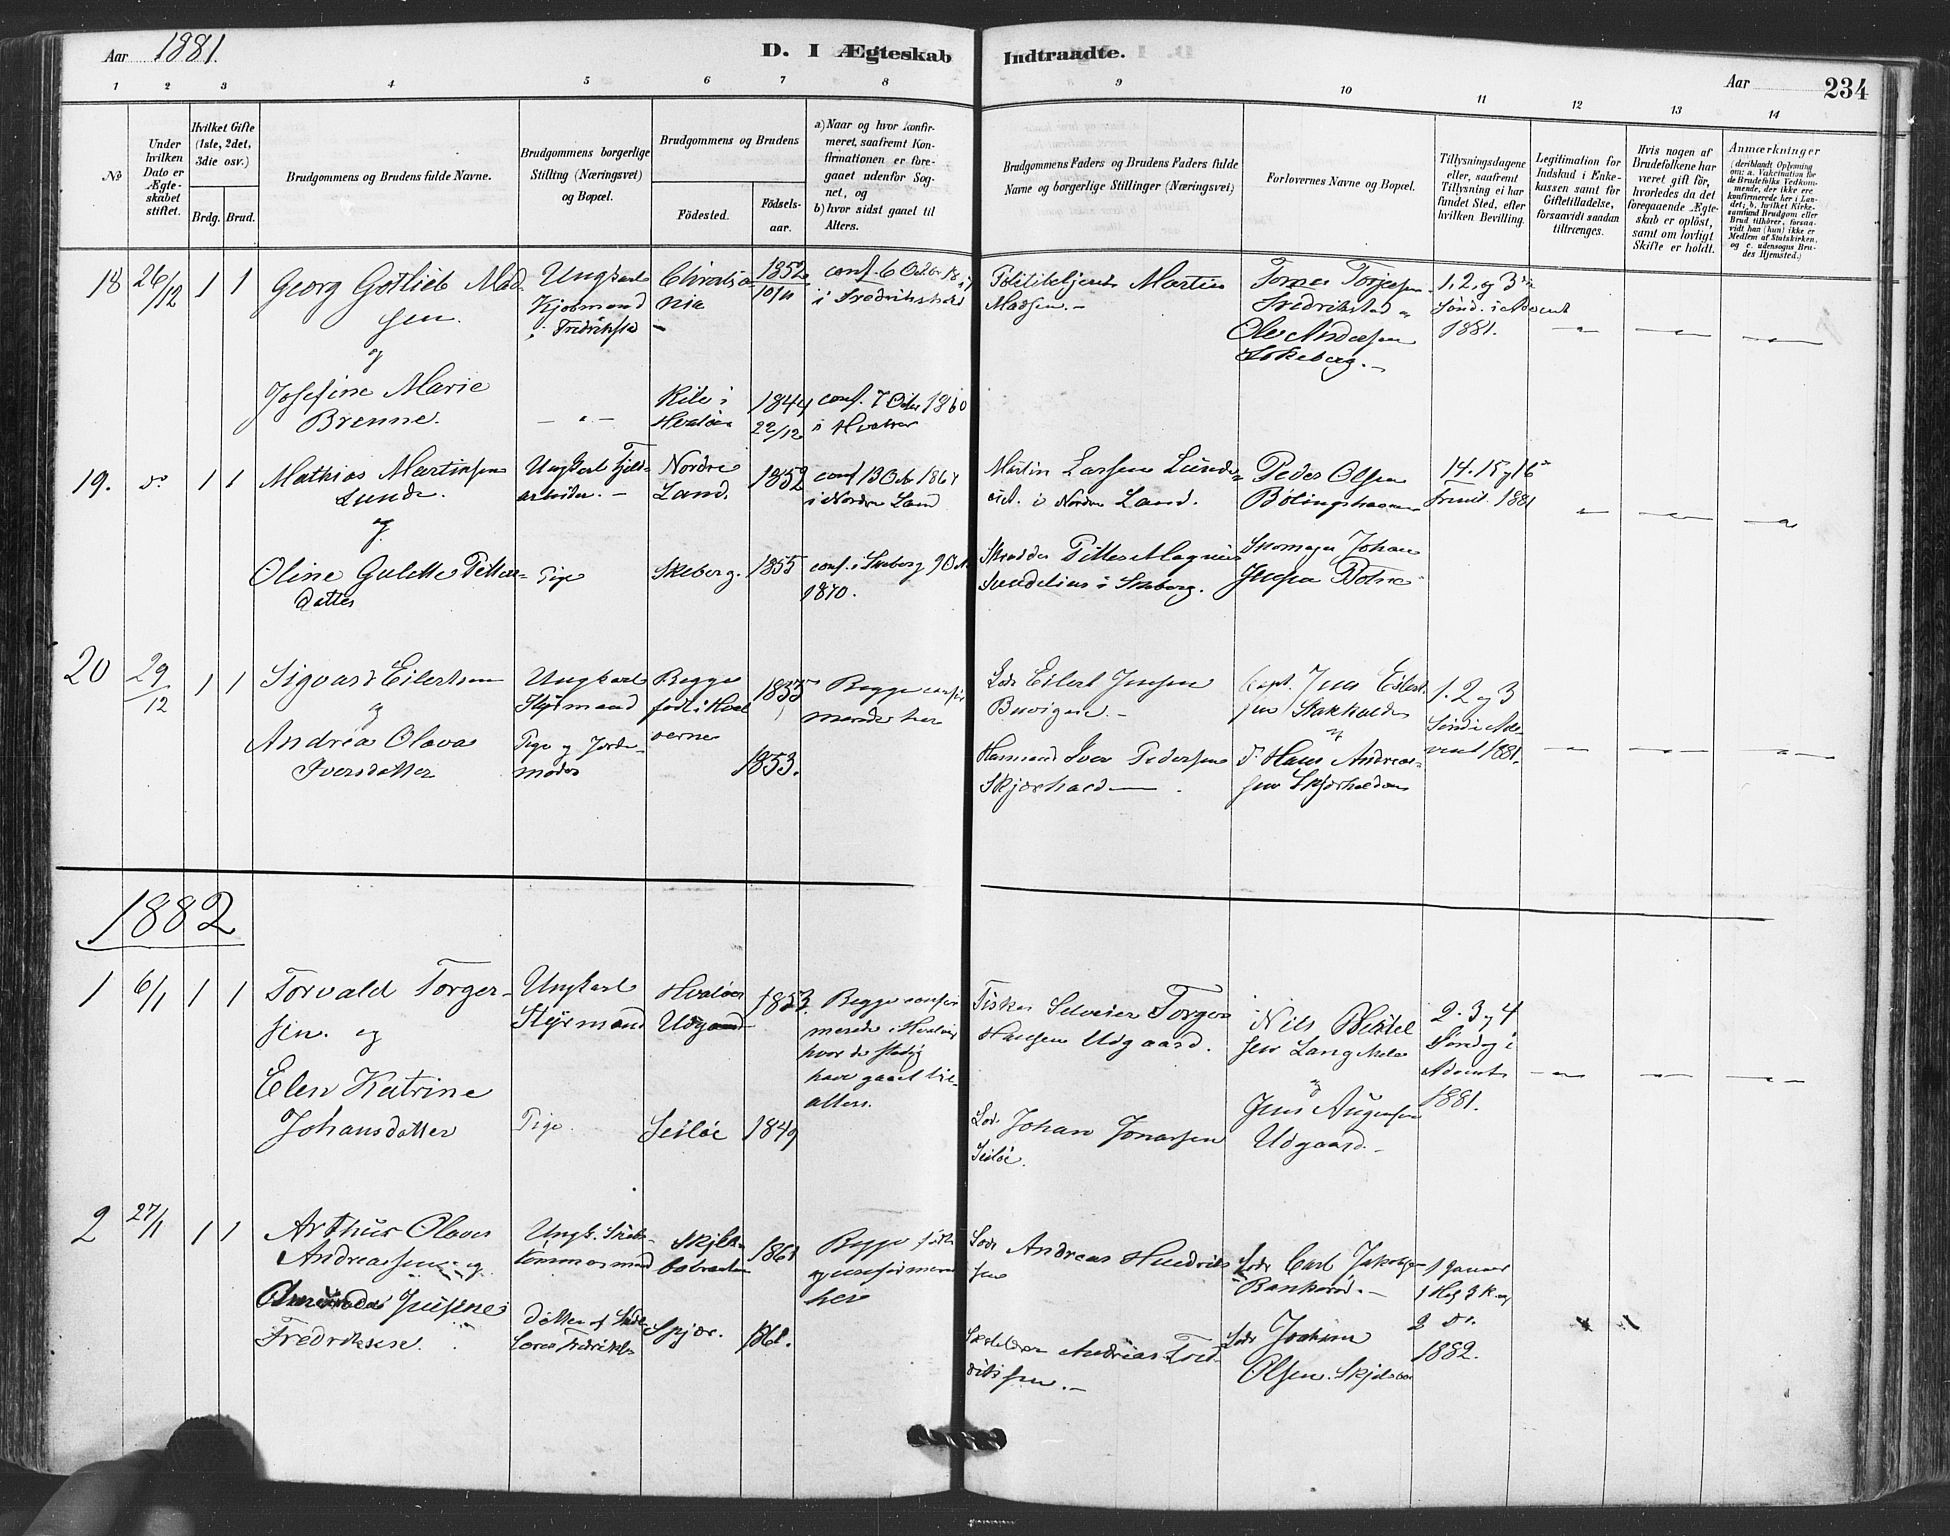 Aar 1881.
D. I Ægteskab Indtraadte.
Aar 234
1 2 3 4 5 6 7 8 9 10 11 12 13 14
No
Under hvilken Dato er Ægteskabet stiftet.
Hvilket Gifte (1ste, 2det, 3die osv.)
Brdg. Brud.
Brudgommens og Brudens fulde Navne.
Brudgommens borgerlige Stilling (Næringsvei) og Bopæl.
Brudgommens og Brudens
Fødested.
Fødsels-aar.
a) Naar og hvor konfirmeret, saafremt Konfirmationen er foregaaet udenfor Sognet, og
b) hvor sidst gaaet til Alters.
Brudgommens Faders og Brudens Faders fulde Navne og borgerlige Stillinger (Næringsvei)
Forlovernes Navne og Bopæl.
Tillysningsdagene eller, saafremt Tillysning ei har fundet Sted, efter hvilken Bevilling.
Legitimation for Indskud i Enkekassen samt for Giftetilladelse, forsaavidt saadan tiltrænges.
Hvis nogen af Brudefolkene har været gift før, hvorledes da det foregaaende Ægteskab er opløst, samt om lovligt Skifte er holdt.
Anmærkninger
(deriblandt Oplysning om: a. Vakcination for de Brudefolks Vedkommende, der ikke ere konfirmerede her i Landet; b. hvilket Kirkesamfund Brudgom eller Brud tilhører, forsaavidt han (hun) ikke er Medlem af Statskirken, og c. udensogns Brudes Hjemsted.)
18 26/12 1 1 Georg Gotlieb Madsen.
og
Ungkarl
Kjøbmand
i Fredrikstad
Christiania
1852
10/11
conf. 6 Octbr
i Fredrikshald
Martin
Madsen. -
Torjesen
Fredrikstad
Ole Andersen
Lokeberg. -
1, 2, og 3die
Sønd. i Advent
1881.
Josefine Marie
Brenne.
- " -
i
1844
22/12
conf. 7 Octbr 1860
i Hvaler
19. do 1 1 Mathias Martinsen
Lunde.
og
Ungkarl
arbeider. -
Nordre
Land.
1852
conf 13 Oct 186
i Nordre Land
Martin Larsen Lunde-
eid. i Nordre Land.
Peder Olsen
14. 15 og 16
1881
Oline Gulette Petters-
datter
Pige
Skeberg.
1855
conf. i Skeberg 9 Oct
1870.
Skrædder Petter Magnus
Sundelius i Skeberg.
Skomager Johan
20 29/12 1 1 Sigvard Eilertsen
og
Ungkarl
Styrmand
Begge
født i Hval-
øerne
1855
Begge confir-
merede her
Lods Eilert Jensen
-
Jens Eilert-
sen
og
1. 2 og 3
Sønd i Ad-
vent 1881.
Andrea Olava
Iversdatter
Pige og Jorde-
moder
1853.
Iver Pedersen
Skjærhald
Hans Andreas-
sen Skjærhalden
1882
1 6/1 1 1 Torvald Torger-
sen. og
Ungkarl
Styrmand
Hvaløer
Udgaard
1853.
Begge confir-
merede i Hvaler
hvor de stadig
have gaaet til-
alters.
Fisker Torger
Hansen Udgaard.
Nils
sen Lang
og
2. 3 og 4
Søndag i
Advent
1881.
Elen Katrine
Johansdatter
Pige.
Seiløe
1849
Lods Johan Jonassen
Seiløe.
Jens Augensen
Udgaard -
2 27/1 1 1 Arthur Olaves
Andreassen og
Ungk.
tømmermand
1861
Begge født
og confirmeret
her
Lods Andreas Hendrik-
sen
Lods Carl Jakobsen
Bankerød. -
1 Januar
2 Do.
1882.
Fredriksen.
Datter af
Fredriksen
1861.
Andreas Fred-
riksen. -
Lods Joakim
Olsen.